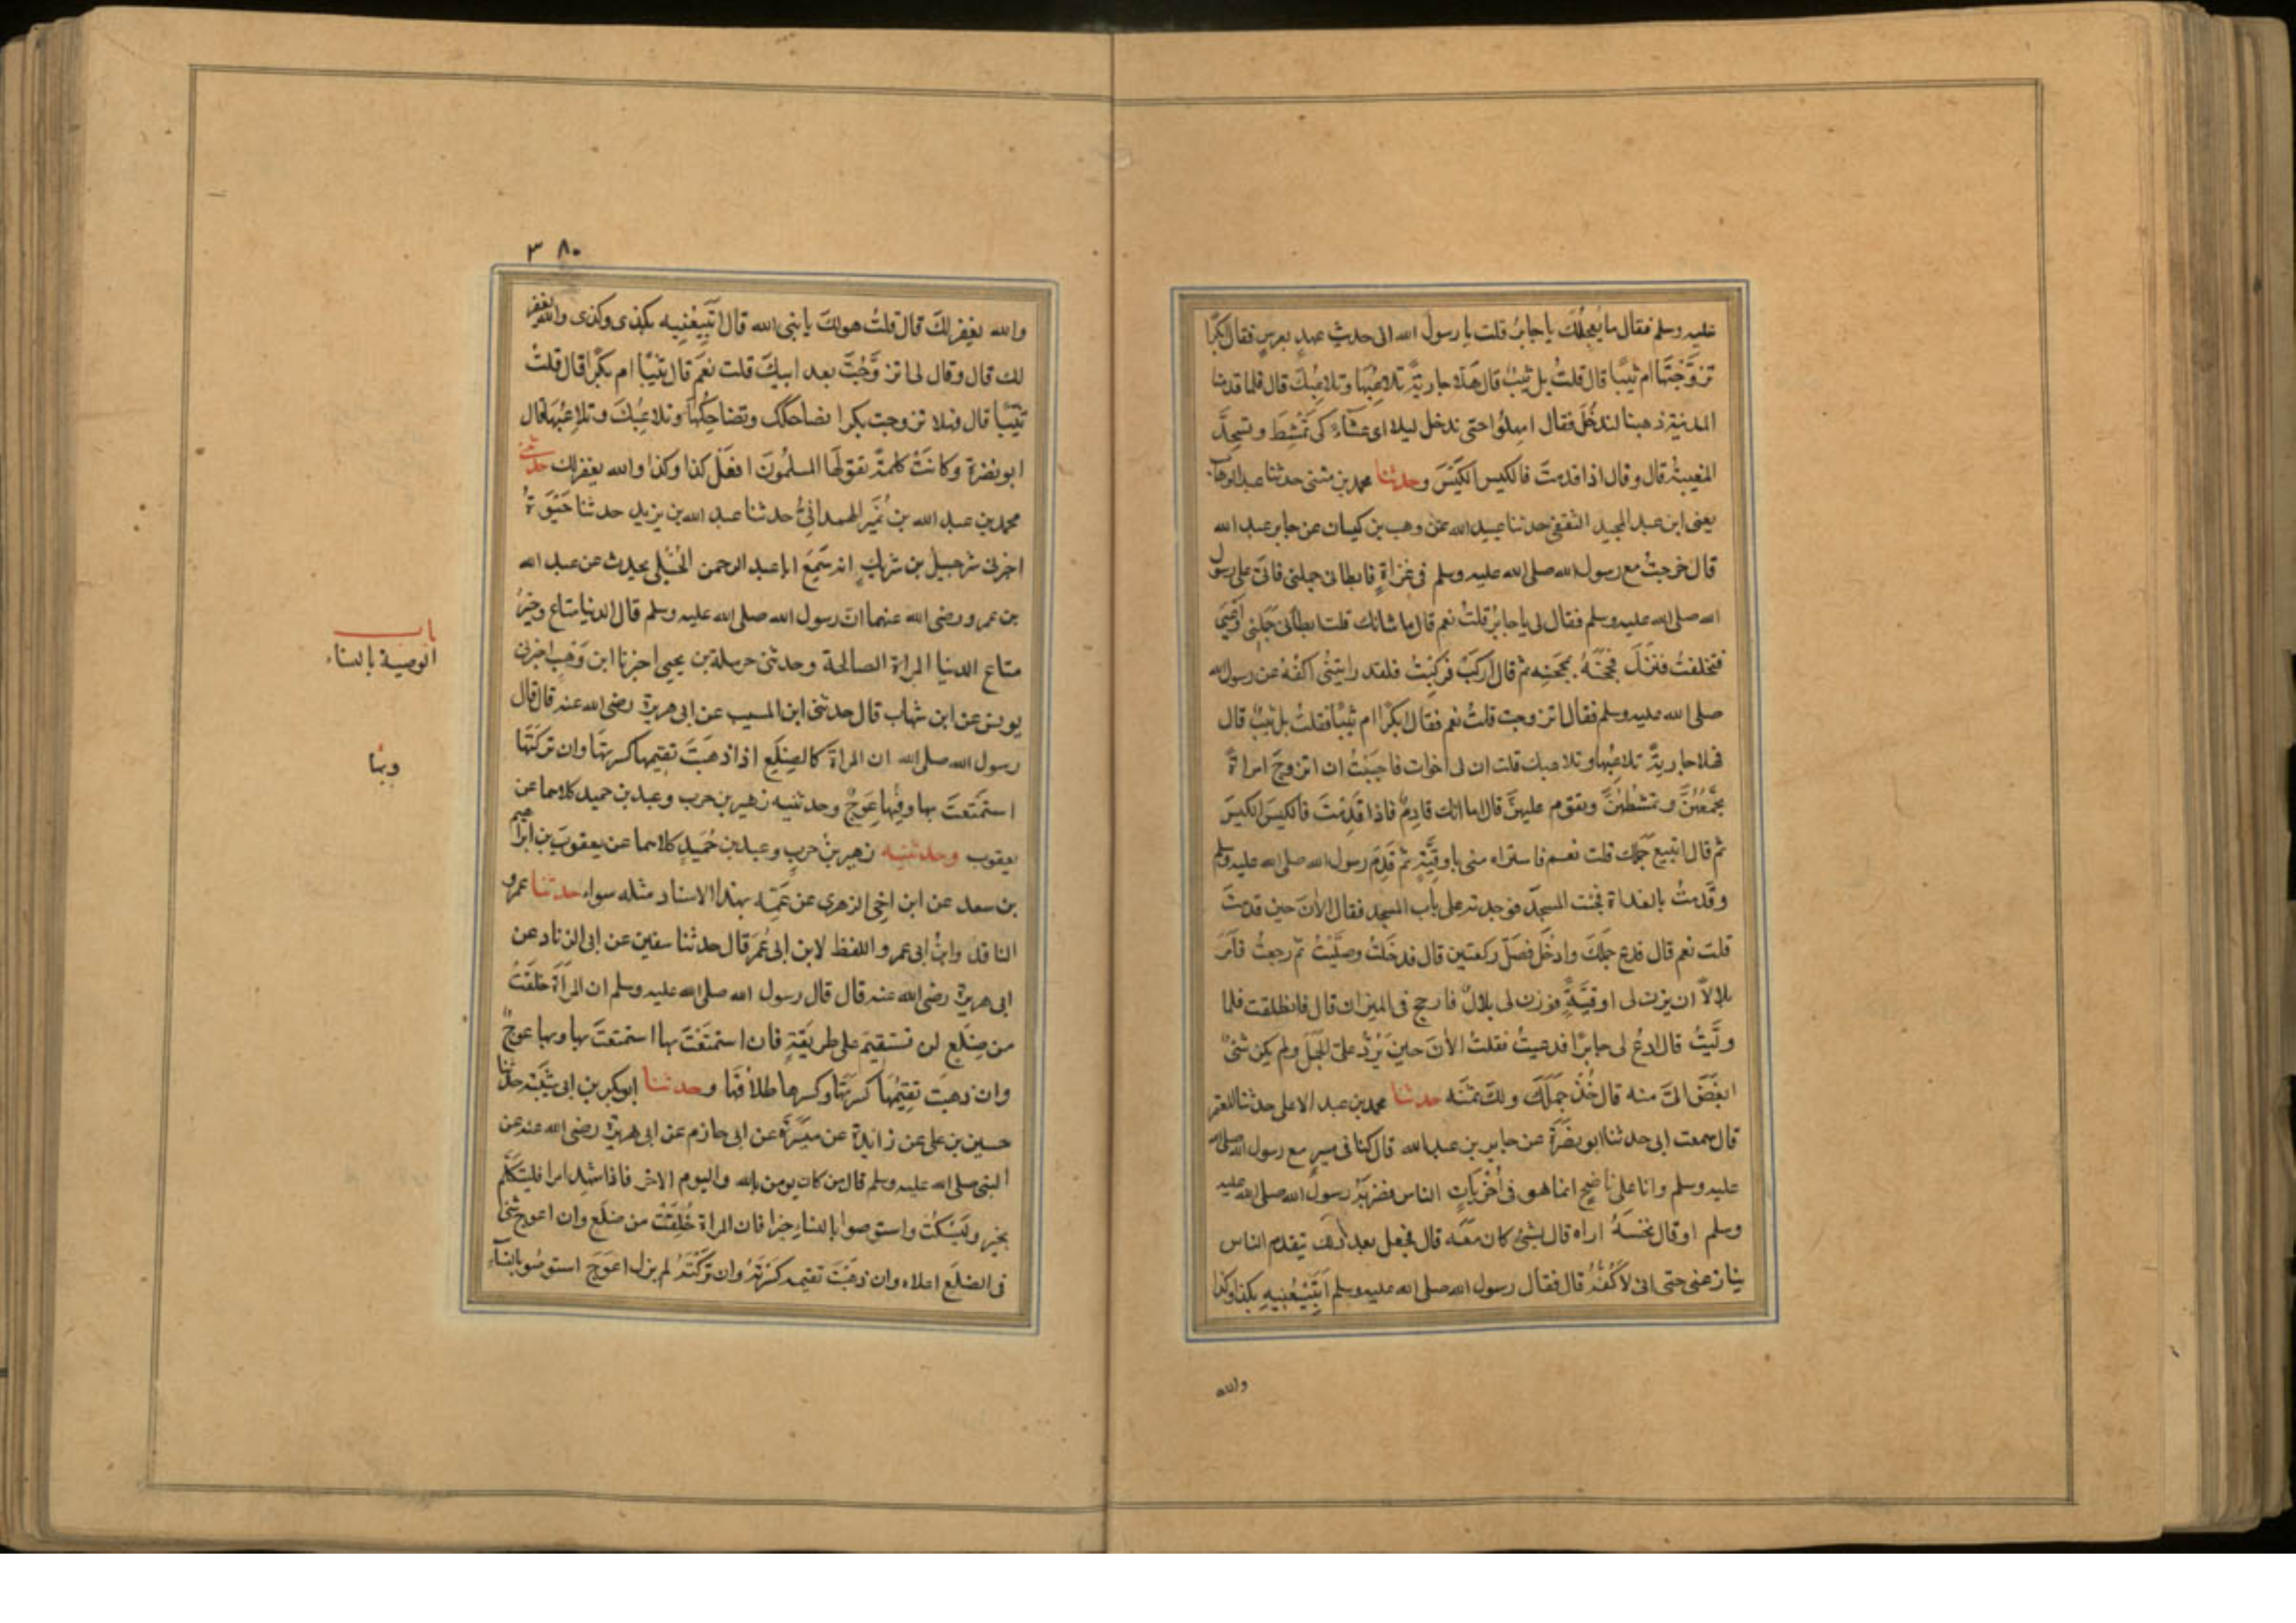 عليه وسلم فقال ما يُعجِلُكَ يا جابرُ قلت يا رسول الله انى حديث عهدٍ بعرسٍ فقال ابكرًا
تزوَّجْتَها ام ثيبًا قال قلتُ بل ثيبٌ قال هلّا جاريةً تلاعِبُها وتلاعِبُكَ قال فلما قدمنا
المدينة ذهبنا لندخُلَ فقال امهِلُوا حتى ندخل ليلا اى عشآءً كى تَمْتشِطَ وتستحِدَّ
المغيبةُ قال وقال اذا قدمتَ فالكيس الكَيْسَ وحدثنا محمد بن مثنى حدثنا عبد الوهاب
يعنى ابن عبد المجيد الثقفى حدثنا عبيد الله عن وهب بن كيسان عن جابر عبد الله
قال خرجتُ مع رسول الله صلى الله عليه وسلم فى غزاةٍ فابطا بى جملى فاتى على رسول
الله صلى الله عليه وسلم فقال لى يا جابرُ قلتُ نعم قال ما شانك قلت ابطأ بى جَمَلِى وأعيى
فتخلفتُ فنَزَلَ فحجَنَهُ بمحجَنِه ثم قال اركَبْ فركِبْتُ فلقد رايتنى اكفُه عن رسول الله
صلى الله عليه وسلم فقال اتزوجت قلتُ نعم فقال ابكرًا ام ثيبًا فقلتُ بل ثيبٌ قال
فهلا جاريةً تلاعِبُها وتلاعبك قلت ان لى اخوات فاحببتُ ان اتزوجَ امراةً
تجمَعُهُنَّ وتمشطُهُنَّ وتقوم عليهنَّ قال اما انك قادِمٌ فاذا قَدِمْتَ فالكيسَ الكيسَ
ثم قال اتبيع جَمَلك قلت نعم فاشتراه منى باوقِيَّةٍ ثم قَدِمَ رسول الله صلى الله عليه وسلم
وقَدِمتُ بالغداة فجئت المسجدَ فوجدته على باب المسجد فقال الآنَ حين قدمتَ
قلت نعم قال فدع جملكَ وادخُل فصَلِّ ركعتين قال فدخَلتُ وصلَّيْتُ ثم رجعتُ فامَرَ
بلالًا ان يزن لى اوقيَّةً فوزن لى بلالٌ فارجح فى الميزان قال فانطلقت فلما
ولَّيتُ قال ادعُ لى جابرًا فدعيتُ فقلتُ الآنَ حين يَرُدُّ علىّ الجمَلَ ولم يكن شىءٌ
ابغَضَ الىَّ منه قال خُذْ جَمَلَكَ ولكَ ثمَنُه حدثنا محمد بن عبد الاعلى حدثنا المعتمر
قال سمعت ابى حدثنا ابو نضْرَةَ عن جابر بن عبد الله قال كنا فى مسيرٍ مع رسول الله صلى الله
عليه وسلم وانا على ناضحٍ انما هو فى أُخْرَياتِ الناس فضربَهُ رسولُ الله صلى الله عليه
وسلم او قال نخسَهُ اراه قال بشىءٍ كان معَه قال فجعل بعد ذلك يتقدم الناس
ينازعنى حتى انى لاكُفُهُ قال فقال رسول الله صلى الله عليه وسلم أتَبِيْعُنِيهِ بكذا وكذا
والله
٣٨٠
والله يغفر لكَ قال قلتُ هو لكَ يا نبى الله قال اتَبِيعُنِيه بكذى وكذى والله يغفر
لك قال وقال لى اتزوَّجْتَ بعد ابيكَ قلت نعَم قال ثيّبًا ام بكرًا قال قلتُ
ثيّبًا قال فهلا تزوجت بكرا تضاحكك وتضاحِكُها وتلاعِبُكَ وتلاعِبُها قال
ابو نضرة وكانَتْ كلمةً تقولُها المسلمُونَ افعَلْ كذا وكذا والله يغفر لك حدثنى
محمد بن عبد الله بن نُمَيْر الهمدانىُّ حدثنا عبد الله بن يزيد حدثنا حَيْوَةُ
اخبرنى شرحبيل بن شريكٍ انه سَمِعَ ابا عبد الرحمن الحُبُلى يحدث عن عبد الله
بن عمرو رضى الله عنهما ان رسول الله صلى الله عليه وسلم قال الدنيا متاع وخيرُ
متاع الدنيا المراة الصالحة وحدثنى حرملة بن يحيى اخبرنا ابن وَهْبٍ اخبرنى
يونس عن ابن شهاب قال حدثنى ابن المسيب عن ابى هريرة رضى الله عنه قال قال
رسول الله صلى الله ان المراة كالضِلَعِ اذا ذهَبْتَ تقيمها كسرتَها وان تركتَها
استمتَعتَ بها وفيها عِوَجٌ وحدثنيه زهير بن حرب وعبد بن حميد كلاهما عن
يعقوب وحدثنيه زهير بنُ حربٍ وعبد بن حُمَيدٍ كلاهما عن يعقوبَ بن ابراهيم
بن سعد عن ابن اخِى الزهرى عن عَمِّه بهذا الاسناد مثله سواء حدثنا عمرو
الناقد وابنُ ابى عمر واللفظ لابن ابى عُمَرَ قال حدثنا سفين عن ابى الزناد عن
ابى هريرة رضى الله عنه قال قال رسول الله صلى الله عليه وسلم ان المرأة خلقَتْ
من ضِلَعٍ لن تستقيمَ على طريقةٍ فان استمتَعْتَ بها استمتعتَ بها وبها عوجٌ
وان ذهبتَ تقِيمُها كسَرتَها وكسرها طلاقُها وحدثنا ابو بكر بن ابى شيْبَة حدثنا
حسين بن على عن زائدة عن ميسَرَةَ عن ابى حازم عن ابى هريرة رضى الله عنه عن
النبى صلى الله عليه وسلم قال من كان يومن بالله واليوم الاخر فاذا شهِد امرا فليتكلَّم
بخير او ليَسْكُتْ واستوصوا بالنساء خيرا فان المراة خُلِقَتْ من ضلَعٍ وان اعوج شىءٍ
فى الضلَع اعلاه وان ذهَبْتَ تقيمه كسَرْتَهُ وان تَرَكْتَهُ لم يزل اعوَجَ استوصُوا بالنسآءِ
باب
الوصية بالنساء